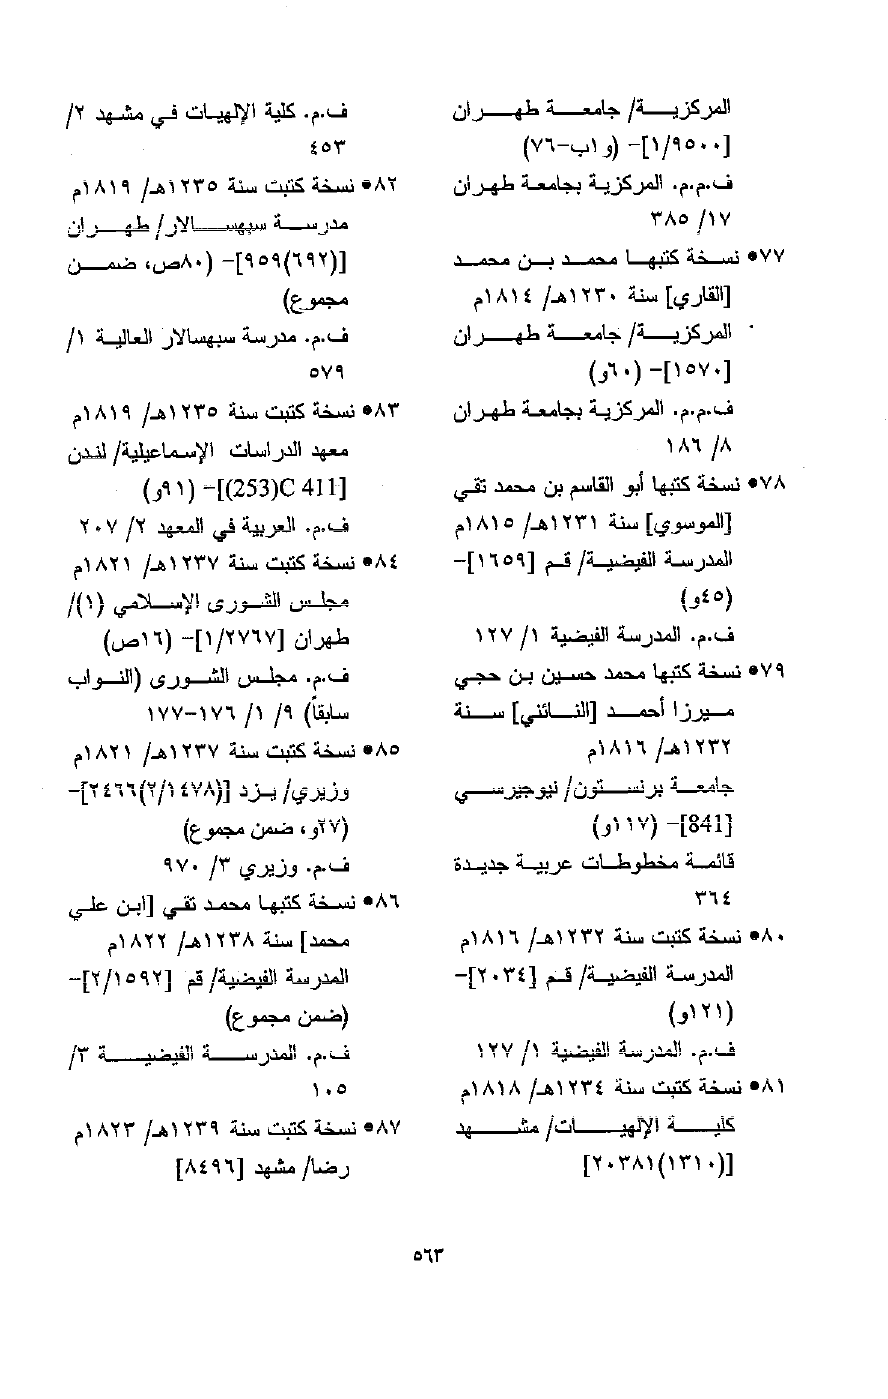 المركزية/ جامعة طهران
[١/٩٥٠٠]- (و١ب-٧٦)
ف.م.م. المركزية بجامعة طهران
١٧/ ٣٨٥
٧٧• نسخة كتبها محمد بن محمد
[القاري] سنة ١٢٣٠هـ/ ١٨١٤م
المركزية/ جامعة طهران
[١٥٧٠]- (٦٠و)
ف.م.م. المركزية بجامعة طهران
٨/ ١٨٦
٧٨• نسخة كتبها أبو القاسم بن محمد تقي
[الموسوي] سنة ١٢٣١هـ/ ١٨١٥م
المدرسة الفيضية/ قم [١٦٥٩]-
(٤٥و)
ف.م. المدرسة الفيضية ١/ ١٢٧
٧٩• نسخة كتبها محمد حسين بن حجي
ميرزا أحمد [النائني] سنة
١٢٣٢هـ/ ١٨١٦م
جامعة برنستون/ نيوجيرسي
[841]- (١١٧و)
قائمة مخطوطات عربية جديدة
٣٦٤
٨٠• نسخة كتبت سنة ١٢٣٢هـ/ ١٨١٦م
المدرسة الفيضية/ قم [٢٠٣٤]-
(١٢١و)
ف.م. المدرسة الفيضية ١/ ١٢٧
٨١• نسخة كتبت سنة ١٢٣٤هـ/ ١٨١٨م
كلية الإلهيات/ مشهد
[(١٣١٠)٢٠٣٨١]
ف.م. كلية الإلهيات في مشهد ٢/
٤٥٣
٨٢• نسخة كتبت سنة ١٢٣٥هـ/ ١٨١٩م
مدرسة سبهسالار/ طهران
[(٦٩٢)٩٥٩]- (٨٠ص، ضمن
مجموع)
ف.م. مدرسة سبهسالار العالية ١/
٥٧٩
٨٣• نسخة كتبت سنة ١٢٣٥هـ/ ١٨١٩م
معهد الدراسات الإسماعيلية/ لندن
[(253)C 411]- (٩١و)
ف.م. العربية في المعهد ٢/ ٢٠٧
٨٤• نسخة كتبت سنة ١٢٣٧هـ/ ١٨٢١م
مجلس الشورى الإسلامي (١)/
طهران [١/٢٧٦٧]- (١٦ص)
ف.م. مجلس الشورى (النواب
سابقاً) ٩/ ١/ ١٧٦-١٧٧
٨٥• نسخة كتبت سنة ١٢٣٧هـ/ ١٨٢١م
وزيري/ يزد [(٢/١٤٧٨)٢٤٦٦]-
(٢٧و، ضمن مجموع)
ف.م. وزيري ٣/ ٩٧٠
٨٦• نسخة كتبها محمد تقي [ابن علي
محمد] سنة ١٢٣٨هـ/ ١٨٢٢م
المدرسة الفيضية/ قم [٢/١٥٩٢]-
(ضمن مجموع)
ف.م. المدرسة الفيضية ٣/
١٠٥
٨٧• نسخة كتبت سنة ١٢٣٩هـ/ ١٨٢٣م
رضا/ مشهد [٨٤٩٦]
٥٦٣